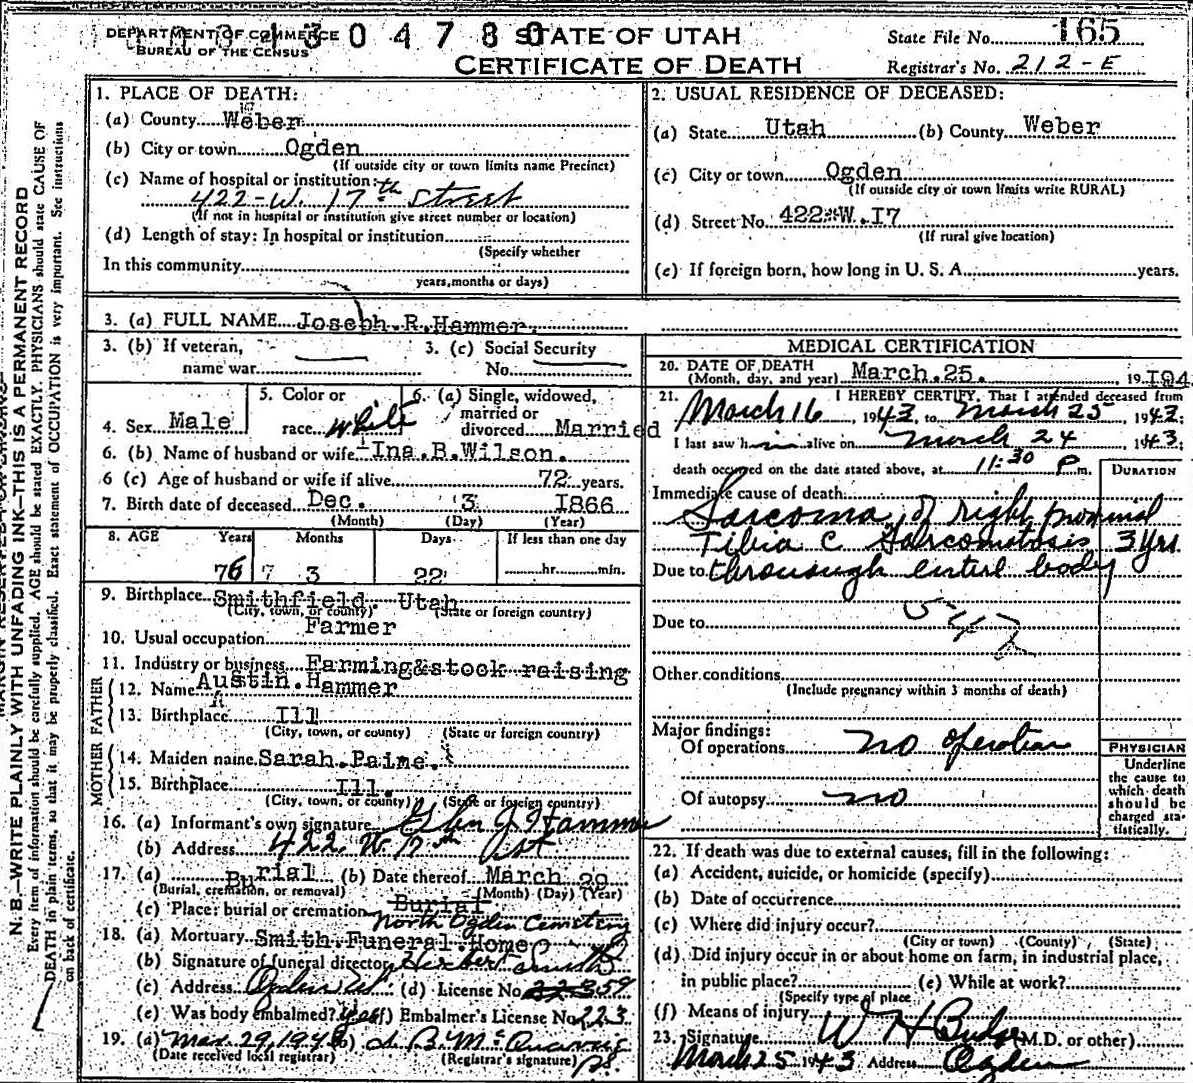 DEPARTMENT OF COMMERCE
BUREAU OF THE CENSUS
0 4 7 8 0
STATE OF UTAH
CERTIFICATE OF DEATH
State File No. 165
Registrar's No. 212-E
MARGIN RESERVED FOR BINDING
N. B.—WRITE PLAINLY WITH UNFADING INK—THIS IS A PERMANENT RECORD
Every item of information should be carefully supplied. AGE should be stated EXACTLY. PHYSICIANS should state CAUSE OF
DEATH in plain terms, so that it may be properly classified. Exact statement of OCCUPATION is very important. See instructions
on back of certificate.
1. PLACE OF DEATH:
(a) County Weber
(b) City or town Ogden
(If outside city or town limits name Precinct)
(c) Name of hospital or institution:
422-W. 17th Street
(If not in hospital or institution give street number or location)
(d) Length of stay: In hospital or institution
(Specify whether
In this community
years, months or days)
2. USUAL RESIDENCE OF DECEASED:
(a) State Utah (b) County Weber
(c) City or town Ogden
(If outside city or town limits write RURAL)
(d) Street No. 422 W. I7
(If rural give location)
(e) If foreign born, how long in U. S. A. years.
3. (a) FULL NAME Joseph.R.Hammer.
3. (b) If veteran,
name war
3. (c) Social Security
No.
4. Sex Male
5. Color or
race white
6. (a) Single, widowed,
married or
divorced Married
6. (b) Name of husband or wife Ina.B.Wilson.
6 (c) Age of husband or wife if alive 72 years.
7. Birth date of deceased Dec. 3 I866
(Month) (Day) (Year)
8. AGE Years Months Days If less than one day
76 3 22 hr. min.
9. Birthplace Smithfield. Utah
(City, town, or county) (State or foreign country)
10. Usual occupation Farmer
11. Industry or business Farming&stock raising
FATHER
12. Name Austin.Hammer
13. Birthplace Ill
(City, town, or county) (State or foreign country)
MOTHER
14. Maiden name Sarah.Paine.
15. Birthplace Ill.
(City, town, or county) (State or foreign country)
16. (a) Informant's own signature Glen J. Hammer
(b) Address 422 W. 17th St
17. (a) Burial (b) Date thereof March 29
(Burial, cremation, or removal) (Month) (Day) (Year)
(c) Place: burial or cremation Burial
North Ogden Cemetery
18. (a) Mortuary Smith.Funeral.Home
(b) Signature of funeral director Herbert Smith
(c) Address Ogden Ut (d) License No.
(e) Was body embalmed? yes (f) Embalmer's License No. 223
19. (a) Mar. 29, 1943 (b)
(Date received local registrar) (Registrar's signature)
MEDICAL CERTIFICATION
20. DATE OF DEATH
(Month, day, and year) March.25. 19 I94
21. I HEREBY CERTIFY, That I attended deceased from
March 16, 1943, to March 25 1943;
I last saw him alive on March 24 1943;
death occurred on the date stated above, at 11:30 P m.
DURATION
Immediate cause of death
Sarcoma of right proximal
Tibia c Sarcomatosis 3 yrs
Due to through entire body
Due to 542
Other conditions
(Include pregnancy within 3 months of death)
Major findings:
Of operations no operation
Of autopsy no
PHYSICIAN
Underline
the cause to
which death
should be
charged sta-
tistically.
22. If death was due to external causes, fill in the following:
(a) Accident, suicide, or homicide (specify)
(b) Date of occurrence
(c) Where did injury occur?
(City or town) (County) (State)
(d) Did injury occur in or about home on farm, in industrial place,
in public place? (e) While at work?
(Specify type of place
(f) Means of injury
23. Signature W H Budge (M.D. or other)
March 25 1943 Address Ogden